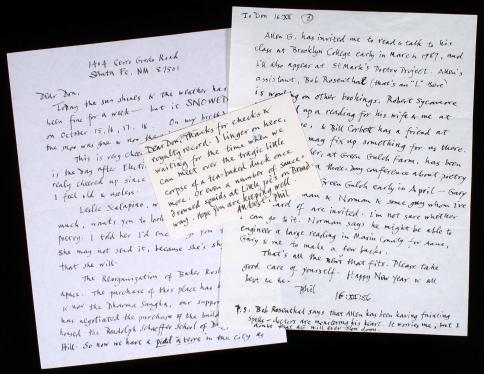 1404 Cerro Gordo Road
Santa Fe, NM 87501
Dear Don,
Today the sun shines & the weather has
been fine for a week — but it SNOWED
on October 15, 16, 17, 18. On my birthday
the moon was
This is very
is the Day After Election
really cheered up since
I feel old & useless.
Leslie Scalapino,
much, wants you to
poetry. I told her I'd
she may not send it, because she's shy
that she will.
The Reorganization of Baker Rosh
apace. The purchase of this place has
is now the Dharma Sangha, our
has negotiated the purchase of the build
housed the Rudolph Schaeffer School of D
Hill. So now we have a pied à terre in the City as
Dear Don, Thanks for checks &
royalty record. I linger on here,
waiting for the time when we
can meet over the tragic little
corpse of a tea-baked duck once
more. Or even a number of sauce-
drowned squids at Little Joe's on Broad-
way. Hope you are keeping well.
Phil
To Don 16:XII 2
Allen G. has invited me to read & talk to his
class at Brooklyn College early in March 1987, and
I'll also appear at St Mark's Poetry Project. Allen's
assistant, Bob Rosenthal (that's an "L" there)
is working on other bookings. Robert Sycamore
up a reading for his wife & me at
& Bill Corbett has a friend at
may fix up something for us there.
at Green Gulch farm, has been
three-day conference about poetry
Green Gulch early in April — Gary
& Norman & some guy whom I've
heard of are invited. I'm not sure whether
I can go to it. Norman says he might be able to
engineer a large reading in Marin County for Anne,
Gary & me to make a few bucks.
That's all the news that fits. Please take
good care of yourself. Happy New Year & all
best to be —
Phil
16:XII:86
P.S. Bob Rosenthal says that Allen has been having fainting
spells — doctors are monitoring his heart. It worries me, but I